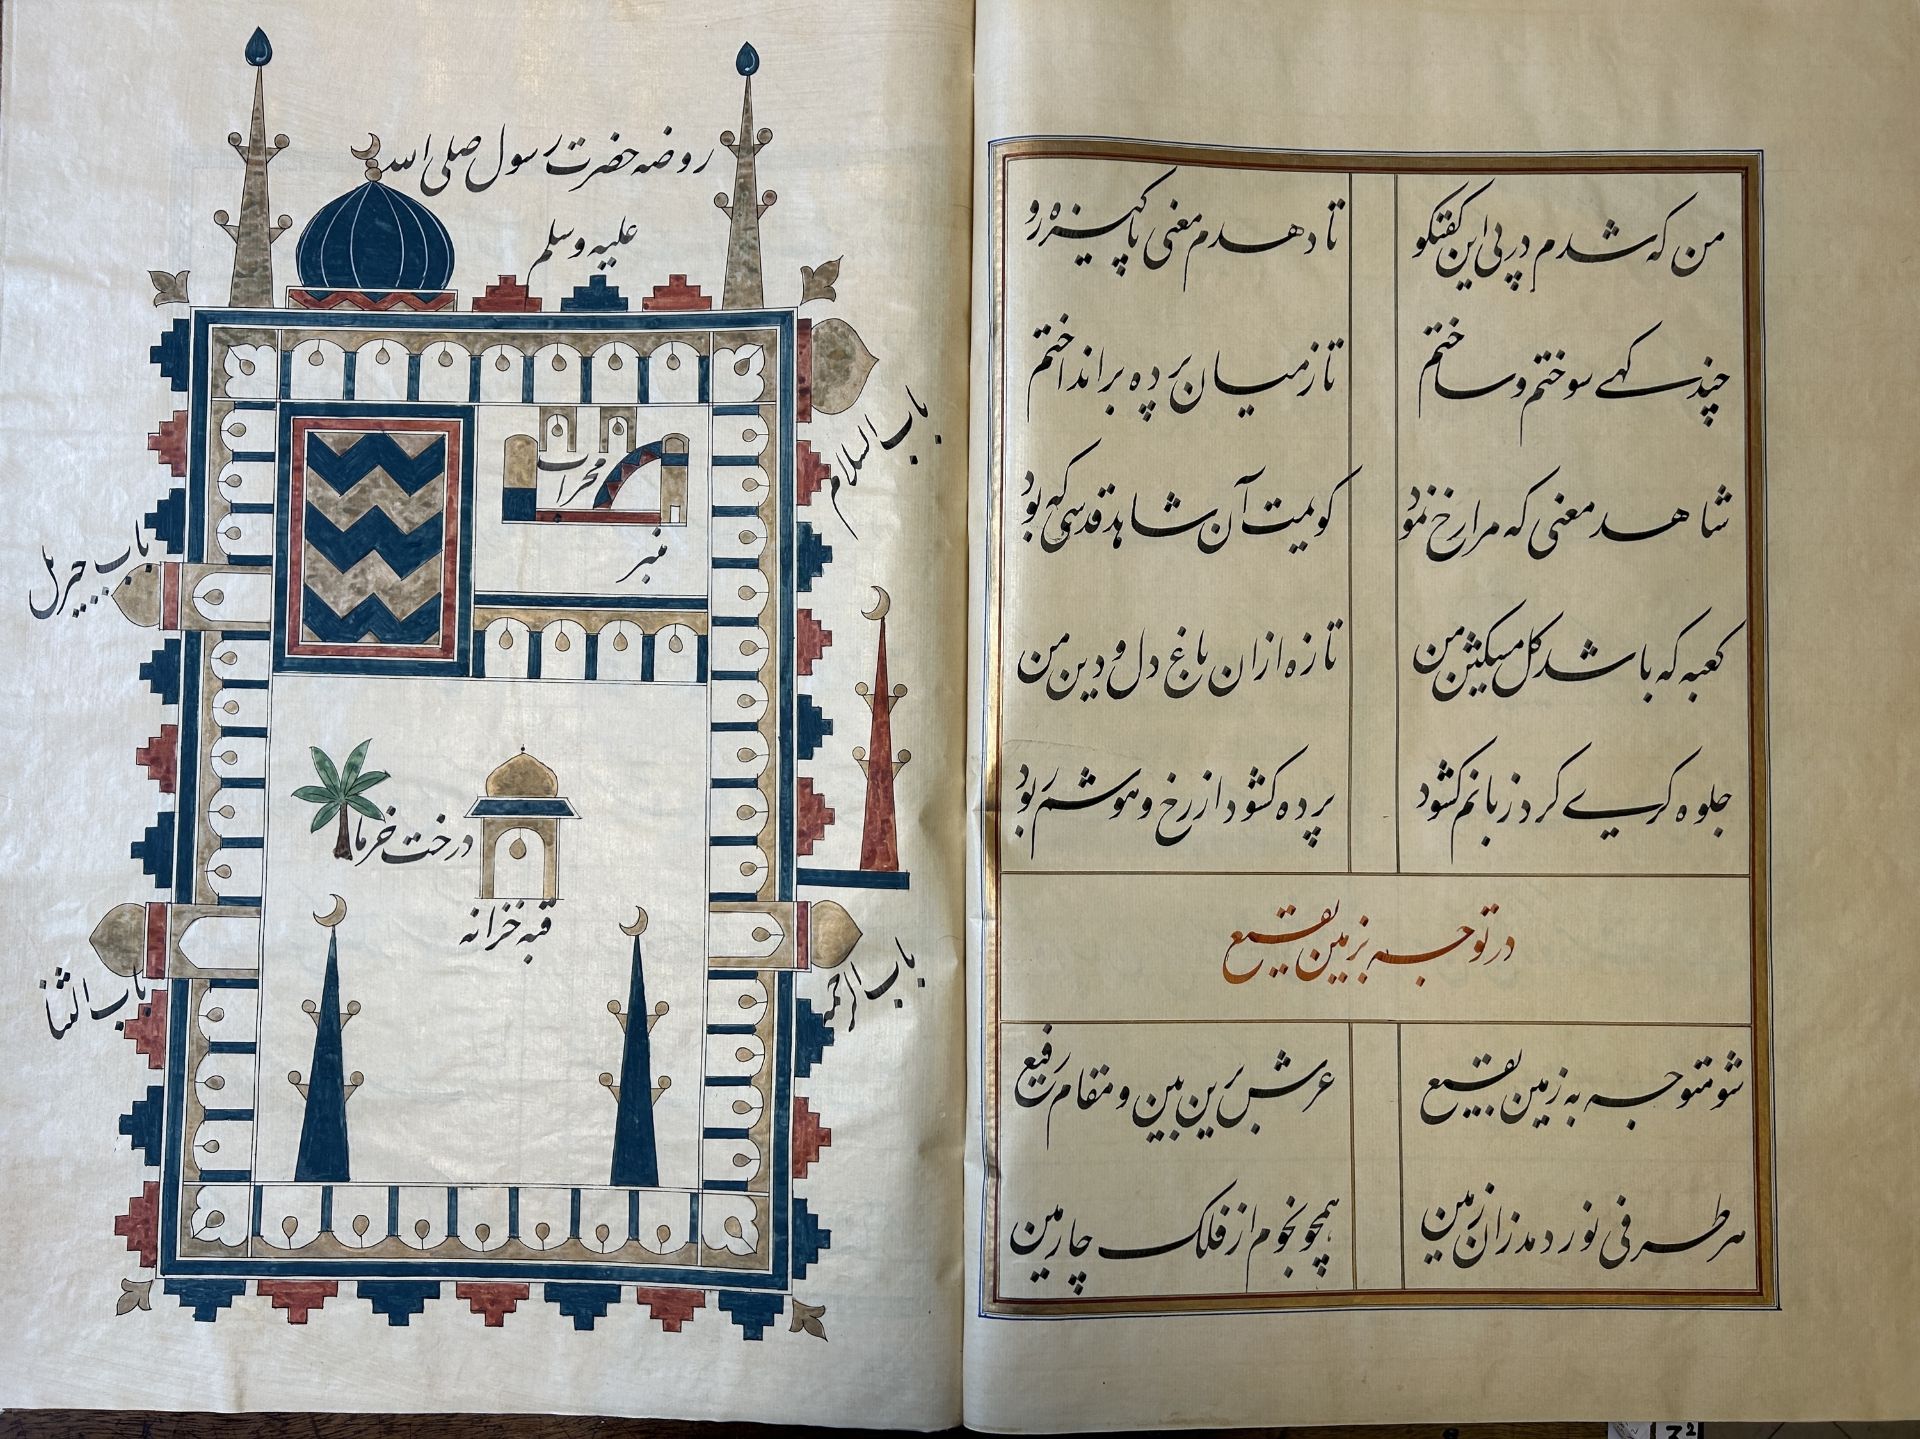 من که شدم در پی این گفتگو تا دهدم معنی پاکیزه رو
چند گهے سوختم و ساختم تا ز میان پرده برانداختم
شاهد معنی که مرا رخ نمود کویمت آن شاهد قدسی که بود
کعبه که باشد کل مشکین من تازه ازان باغ دل و دین من
جلوه کرے کرد زبانم کشود پرده کشود از رخ و هوشم ربود
در توجه بزمین بقیع
شو متوجه به زمین بقیع عرش برین بین و مقام رفیع
هر طرفی نور دمد زان زمین همچو نجوم از فلک چارمین
روضه حضرت رسول صلی الله
علیه وسلم
باب السلام
محراب
منبر
باب جبریل
درخت خرما
قبه خزانه
باب الرحمه
باب النسا